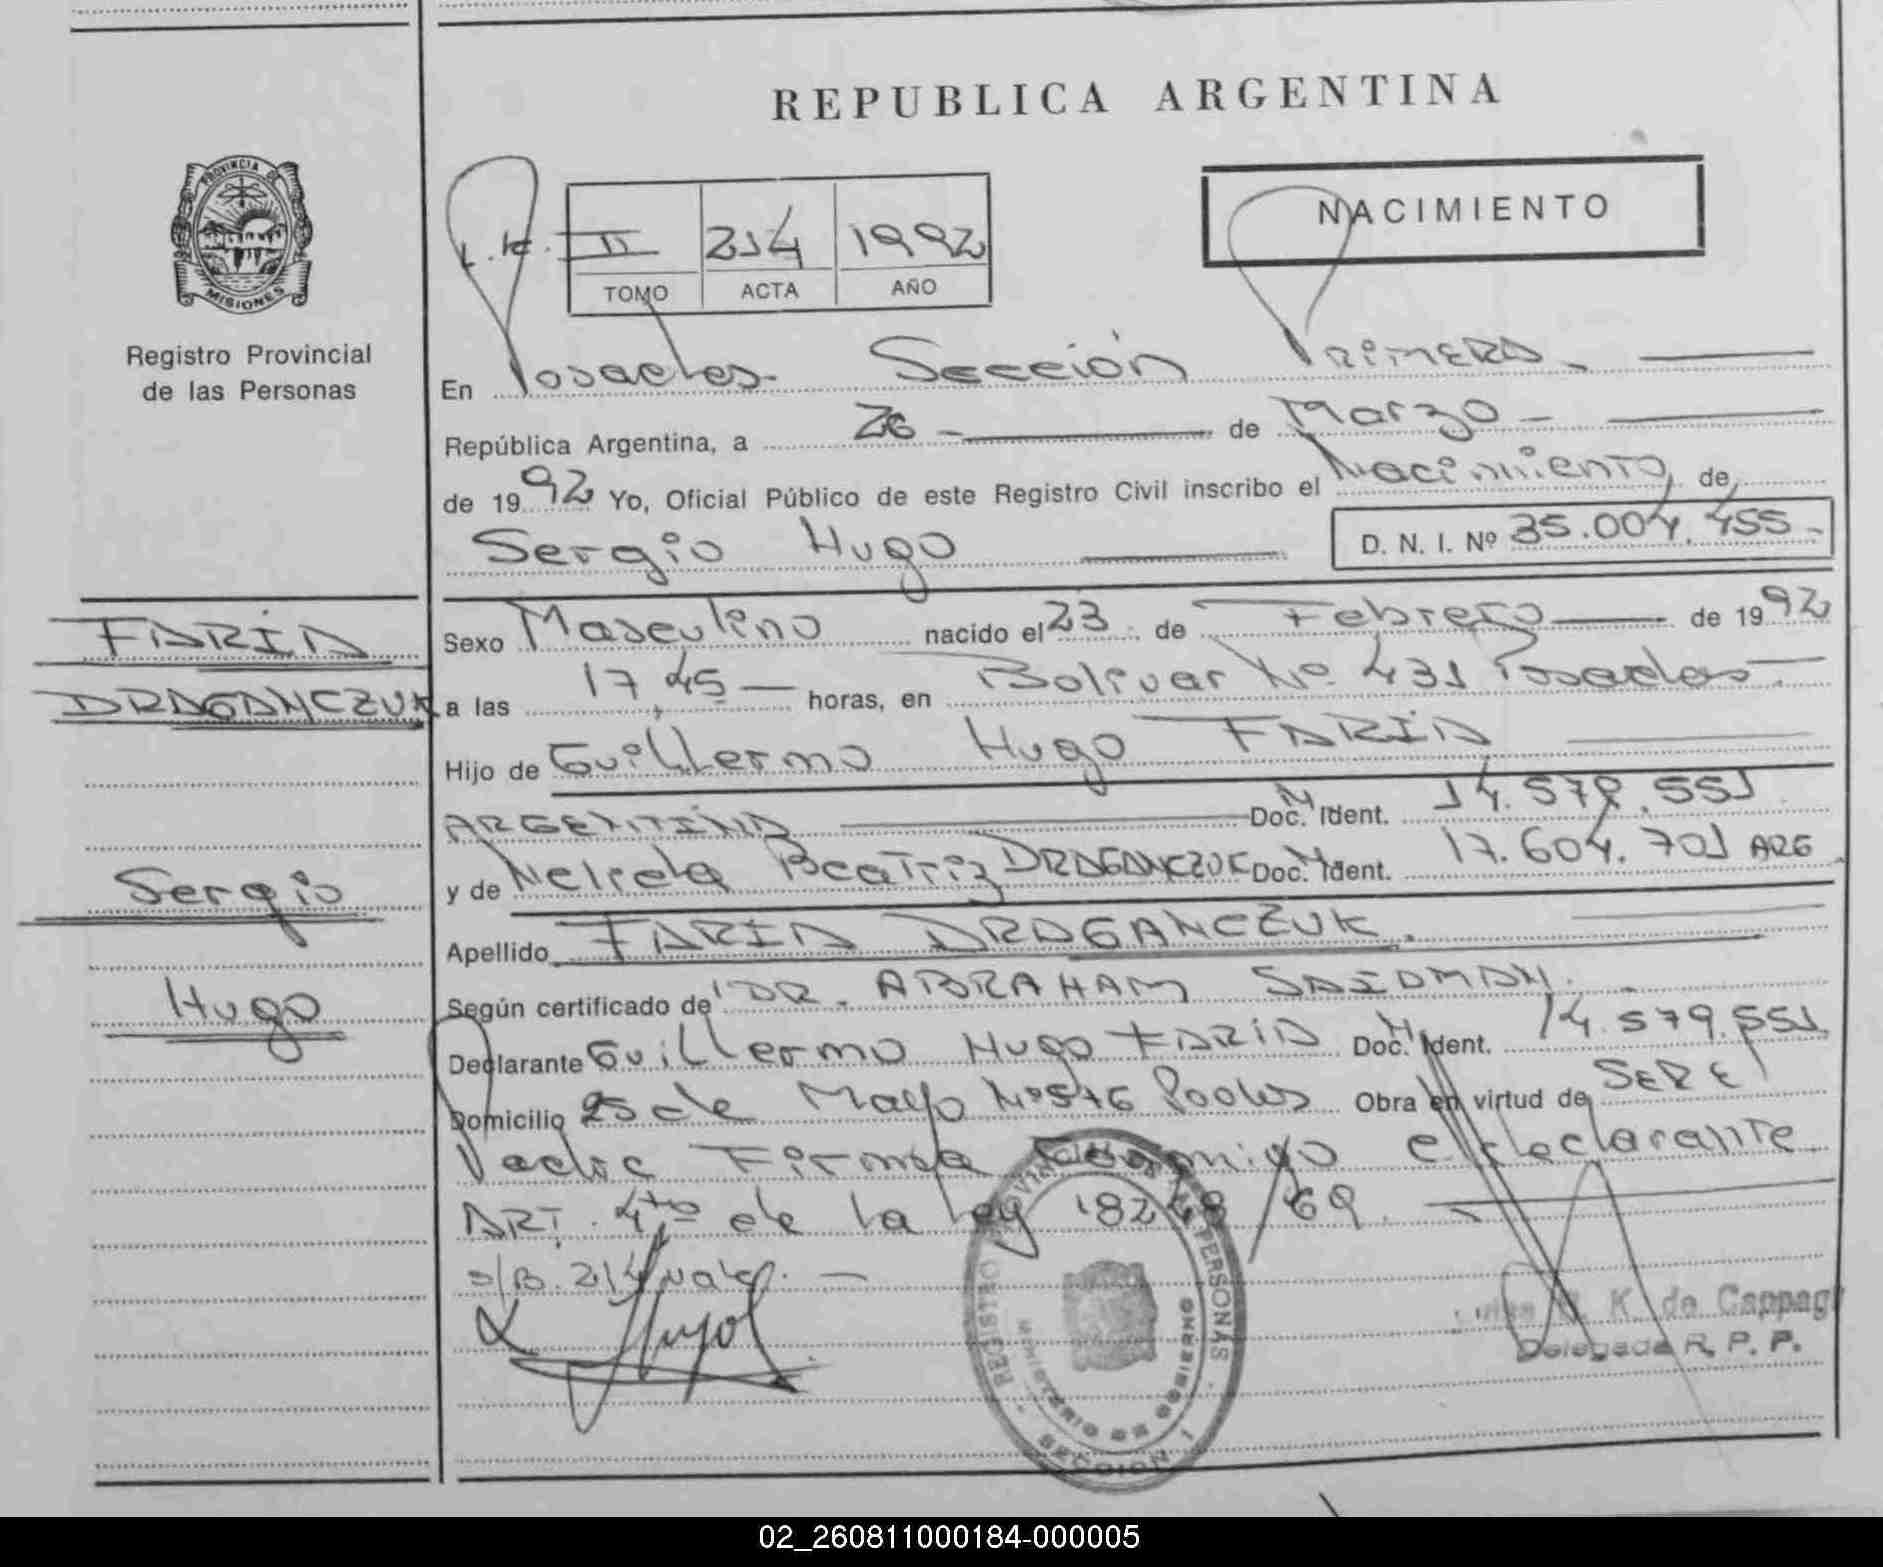 REPUBLICA ARGENTINA
PROVINCIA DE
MISIONES
Registro Provincial
de las Personas
NACIMIENTO
II 214 1992
TOMO ACTA AÑO
En Posadas Sección PRIMERA
República Argentina, a 26 de Marzo
de 1992 Yo, Oficial Público de este Registro Civil inscribo el Nacimiento de
Sergio Hugo D. N. I. Nº 35.004.455
FARIA
DRAGANCZUK
Sergio
Hugo
Sexo Masculino nacido el 23 de Febrero de 1992
a las 17,45 horas, en Bolivar Nº 431 Posadas
Hijo de Guillermo Hugo FARIA
ARGENTINA Doc. Ident. 14.579.551
y de Nelida Beatriz DRAGANCZUK Doc. Ident. 17.604.701 ARG
Apellido FARIA DRAGANCZUK.
Según certificado de DR. ABRAHAM SAIDMAN.
Declarante Guillermo Hugo FARIA Doc. Ident. 14.579.551
Domicilio 25 de Mayo Nº 576 Pdas Obra en virtud de SER El
Padre Firma Conmigo el declarante
ART. 4to de la ley 18248/69.
S/B. 214 vale.
REGISTRO PROVINCIAL DE LAS PERSONAS
MINISTERIO DE GOBIERNO
SECCION 1
K. de Cappag
Delegada R. P. P.
02_260811000184-000005